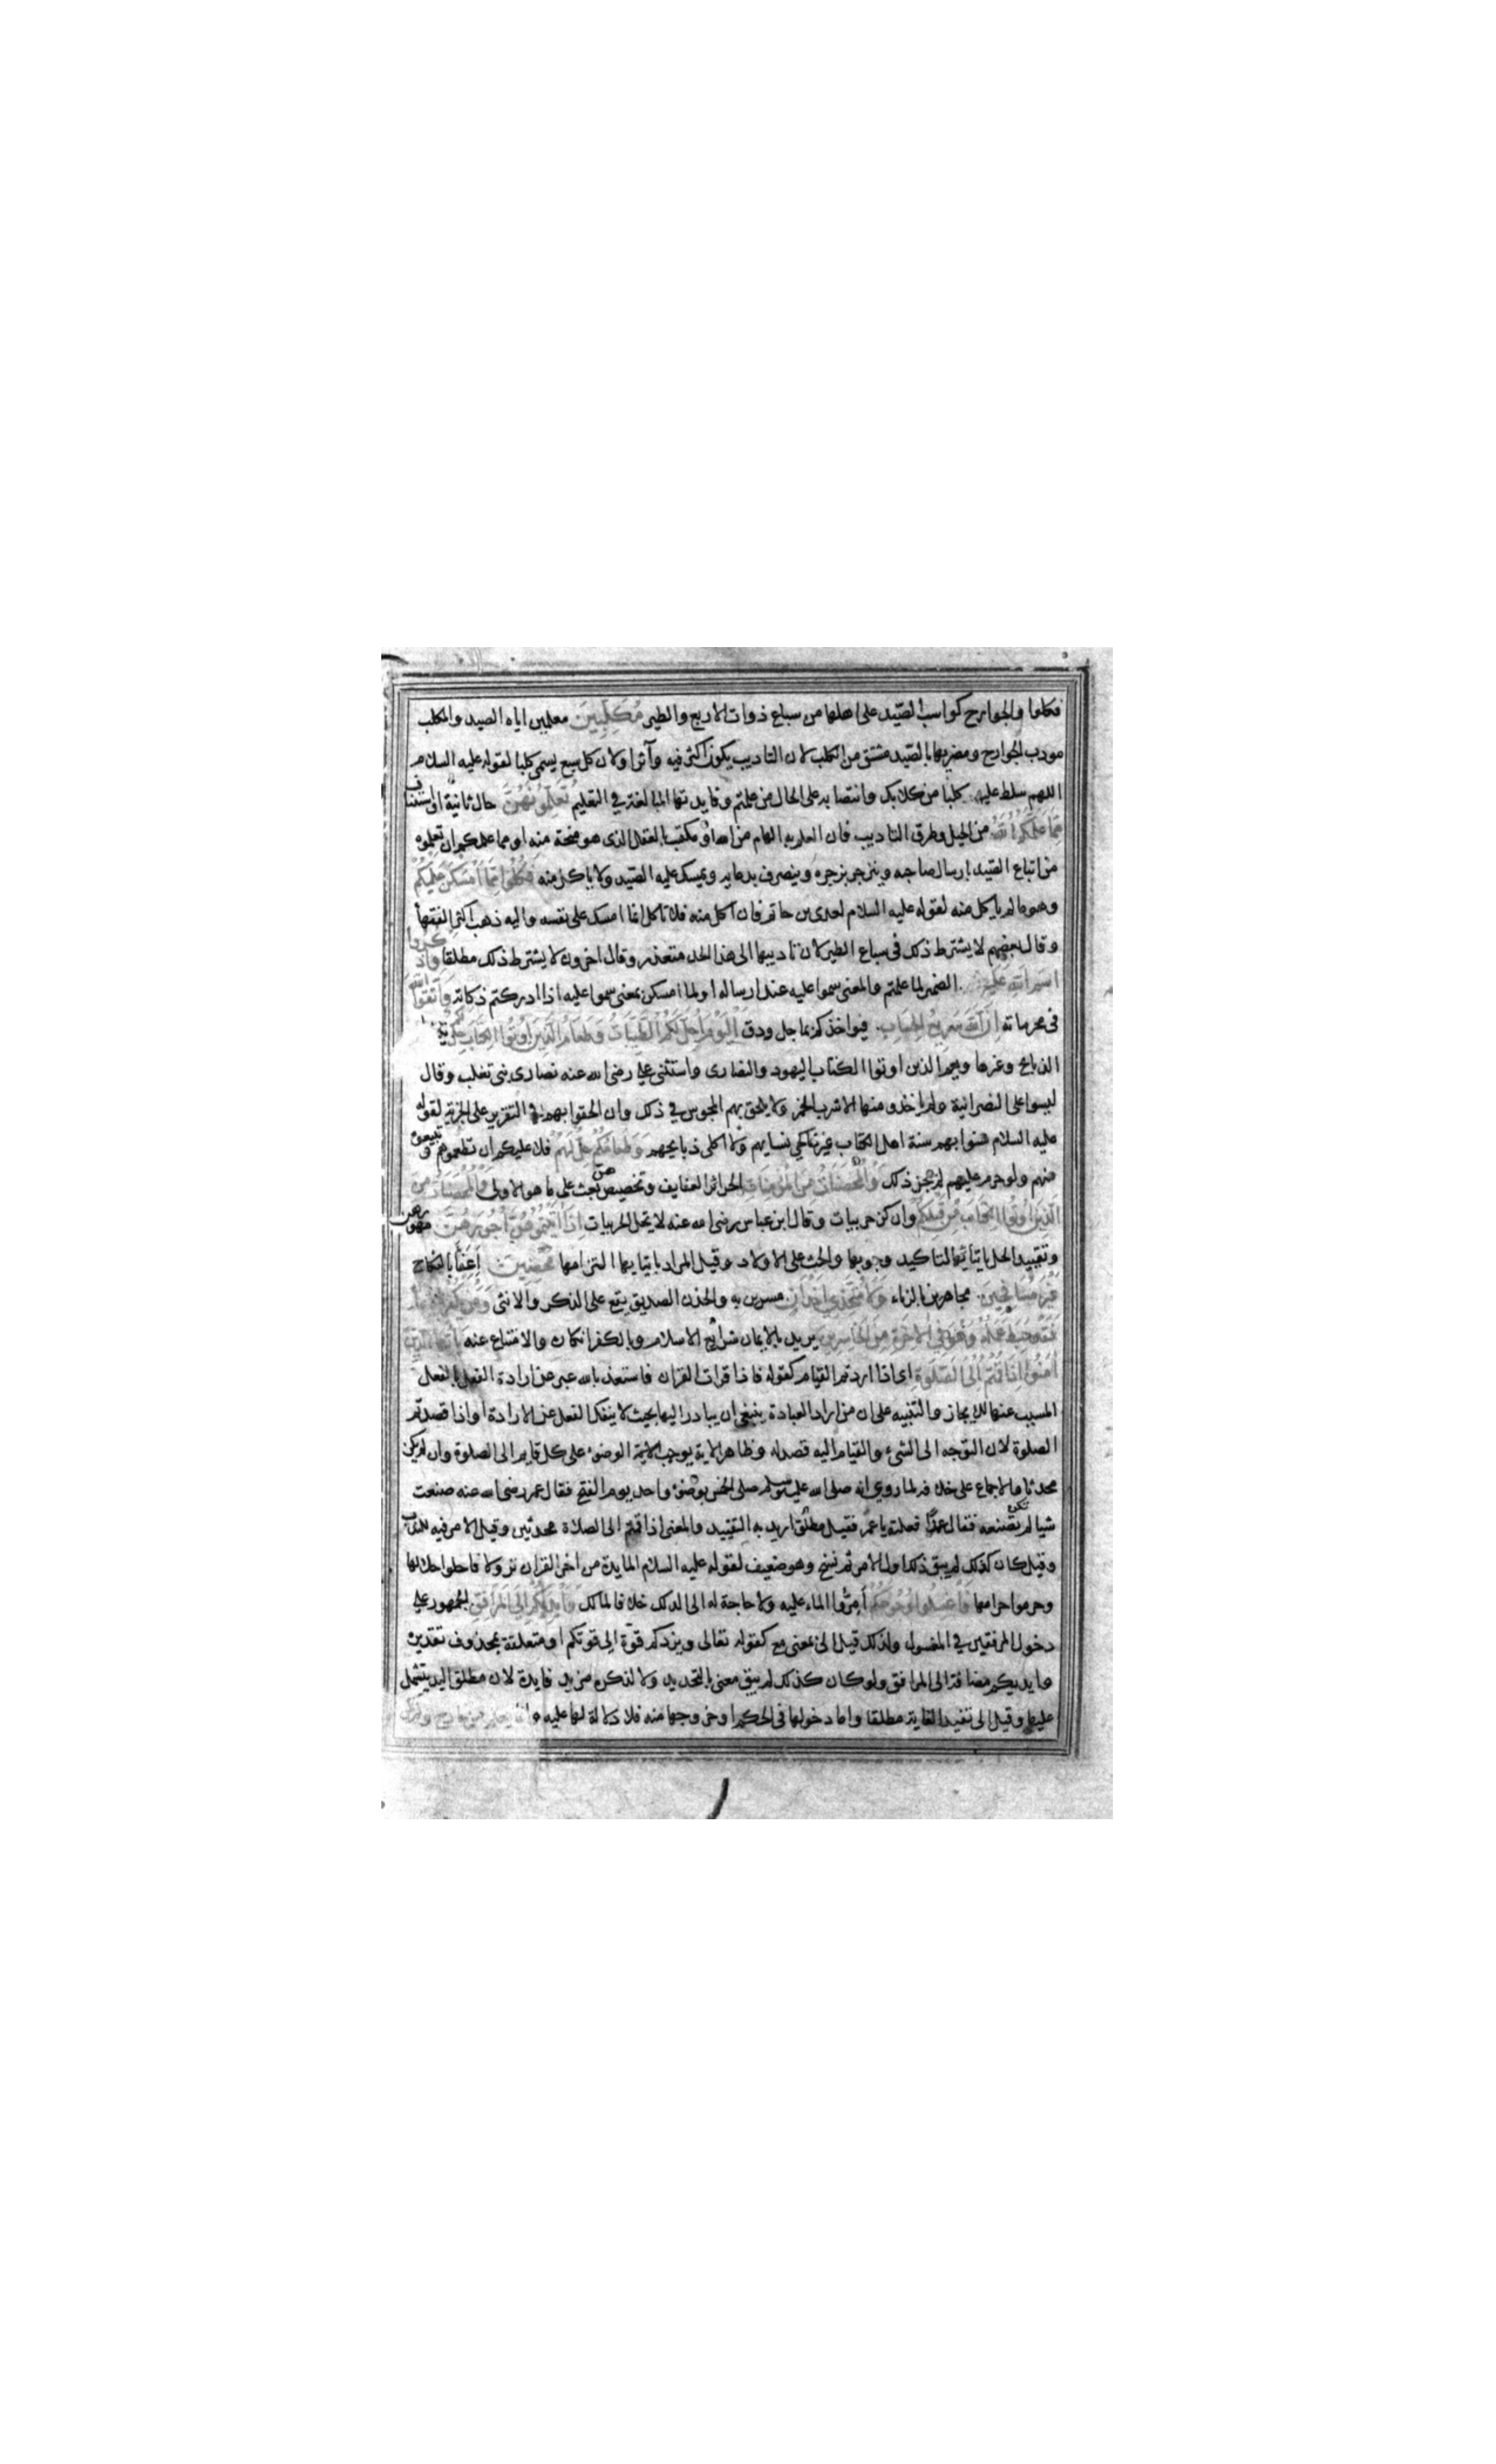 فكلوا والجوارح كواسب الصيد على اهلها من سباع ذوات الاربع والطير مُكَلِّبِينَ معلمين اياه الصيد والمكلب
مودب الجوارح ومضريها بالصيد مشتق من الكلب لان التاديب يكون اكثر فيه وآثر اولان كل سبع يسمى كلبا لقوله عليه السلام
اللهم سلط عليه كلبا من كلابك وانتصابه على الحال من علمتم وفايدتها المبالغة في التعليم تُعَلِّمُونَهُنَّ حال ثانية او استيناف
مِمَّا عَلَّمَكُمُ اللَّهُ من الحيل وطرق التاديب فان العلم به الهام من الله او مكتسب بالعقل الذى هو منحة منه او مما علمكم ان تعلموه
من اتباع الصيد بارسال صاحبه وينزجر بزجره وينصرف بدعايه ويمسك عليه الصيد ولا ياكل منه فَكُلُوا مِمَّا أَمْسَكْنَ عَلَيْكُمْ
وهو ما لم ياكل منه لقوله عليه السلام لعدى بن حاتم فان اكل منه فلا تاكل انما امسك على نفسه واليه ذهب اكثر الفقهأ
وقال بعضهم لا يشترط ذلك فى سباع الطير لان تاديبها الى هذا الحد متعذر وقال اخرون لا يشترط ذلك مطلقا واذكروا
اسم الله عليه الضمير لما علمتم والمعنى سموا عليه عند ارساله او لما امسكن بمعنى سموا عليه اذا ادركتم ذكاته وَاتَّقُوا اللَّهَ
فى محرماته إِنَّ اللَّهَ سَرِيعُ الْحِسَابِ فيواخذكم بما جل ودق الْيَوْمَ أُحِلَّ لَكُمُ الطَّيِّبَاتُ وَطَعَامُ الَّذِينَ أُوتُوا الْكِتَابَ حِلٌّ لَكُمْ
الذبايح وغيرها ويعم الذين اوتوا الكتاب اليهود والنصارى واستثنى على رضى الله عنه نصارى بنى تغلب وقال
ليسوا على النصرانية ولم ياخذو منها الا شرب الخمر ولا يلحق بهم المجوس في ذلك وان الحقوا بهم في التقرير على الجزية لقوله
عليه السلام سنوا بهم سنة اهل الكتاب غير ناكحي نسايهم ولا اكلى ذبايحهم وَطَعَامُكُمْ حِلٌّ لَهُمْ فلا عليكم ان تطعموهم وتبيعوه
منهم ولو حرم عليهم لم يجز ذلك وَالْمُحْصَنَاتُ مِنَ الْمُؤْمِنَاتِ الحرائر العفايف وتخصيصهن بعث على ما هو الاولى وَالْمُحْصَنَاتُ مِنَ
الَّذِينَ أُوتُوا الْكِتَابَ مِنْ قَبْلِكُمْ وان كن حربيات وقال ابن عباس رضى الله عنه لا تحل الحربيات إِذَا آتَيْتُمُوهُنَّ أُجُورَهُنَّ مهورهن
وتقييد الحل بايتائها لتاكيد وجوبها والحث على الاولاد وقيل المراد بايتايها التزامها مُحْصِنِينَ أعفأ بالنكاح
غَيْرَ مُسَافِحِينَ مجاهرين بالزناء وَلَا مُتَّخِذِي أَخْدَانٍ مسرين به والخدن الصديق يقع على الذكر والانثى وَمَنْ يَكْفُرْ
فَقَدْ حَبِطَ عَمَلُهُ وَهُوَ فِي الْآخِرَةِ مِنَ الْخَاسِرِينَ يريد بالايمان شرايع الاسلام وبالكفر انكاره والامتناع عنه يَا أَيُّهَا الَّذِينَ
آمَنُوا إِذَا قُمْتُمْ إِلَى الصَّلَوةِ اى اذا اردتم القيام كقوله فاذا قرات القران فاستعذ بالله عبر عن ارادة الفعل بالفعل
المسبب عنها للايجاز والتنبيه على ان من اراد العبادة ينبغى ان يبادر اليها بحيث لا ينفك الفعل عن الارادة او اذا قصدتم
الصلوة لان التوجه الى الشئ والقيام اليه قصد له وظاهر الاية يوجب الوضوء على كل قايم الى الصلوة وان لم يكن
محدثا والاجماع على خلافه لما روي انه صلى الله عليه وسلم صلى الخمس بوضوء واحد يوم الفتح فقال عمر رضى الله عنه صنعت
شيا لم تكن تصنعه فقال عمدًا فعلته يا عمر فقيل مطلق اريد به التقييد والمعنى اذا قمتم الى الصلاة محدثين وقيل الامر فيه للندب
وقيل كان كذلك لم يبق ذلك اول الامر ثم نسخ وهو ضعيف لقوله عليه السلام المايدة من اخر القران نزولا فاحلوا حلالها
وحرموا حرامها فَاغْسِلُوا وُجُوهَكُمْ أمرُّوا الماء عليه ولا حاجة له الى الدلك خلافا لمالك وَأَيْدِيَكُمْ إِلَى الْمَرَافِقِ الجمهور على
دخول المرفقين في المغسول ولذلك قيل الى بمعنى مع كقوله تعالى ويزدكم قوّة الى قوتكم او متعلقة بمحذوف تقديره
وايديكم مضافة الى المرافق ولو كان كذلك لم يبق معنى بالتحديد ولا لذكره مزيد فايدة لان مطلق اليد يشتمل
عليها وقيل الى تفيد الغاية مطلقا واما دخولها فى الحكم او خروجها منه فلا دلالة لها عليه وانما يعلم من خارج ولم يكن